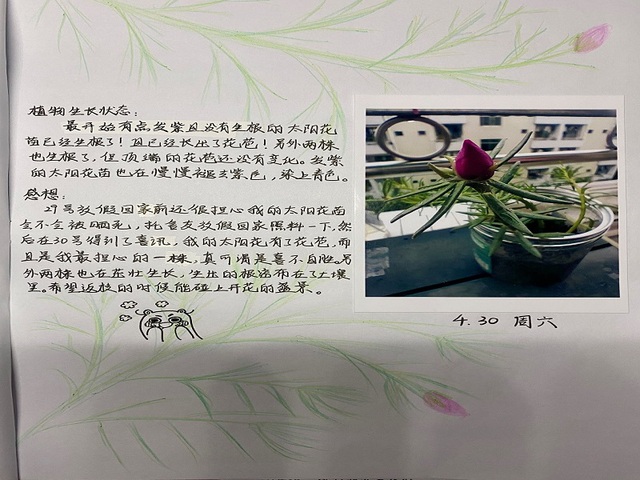 植物生长状态：
最开始有点发紫且没有生根的太阳花
苗已经生根了！且已经长出了花苞！另外两株
也生根了，但顶端的花苞还没有变化。发紫
的太阳花苗也在慢慢褪去紫色，染上青色。
感想：
29号放假回家前还很担心我的太阳花苗
会不会被晒死，托舍友放假回家照料一下，然
后在30号得到了喜讯，我的太阳花有了花苞，而
且是我最担心的一株，真可谓是喜不自胜。另
外两株也在茁壮生长，生出的根密布在了土壤
里。希望返校的时候能碰上开花的盛景。
4.30 周六